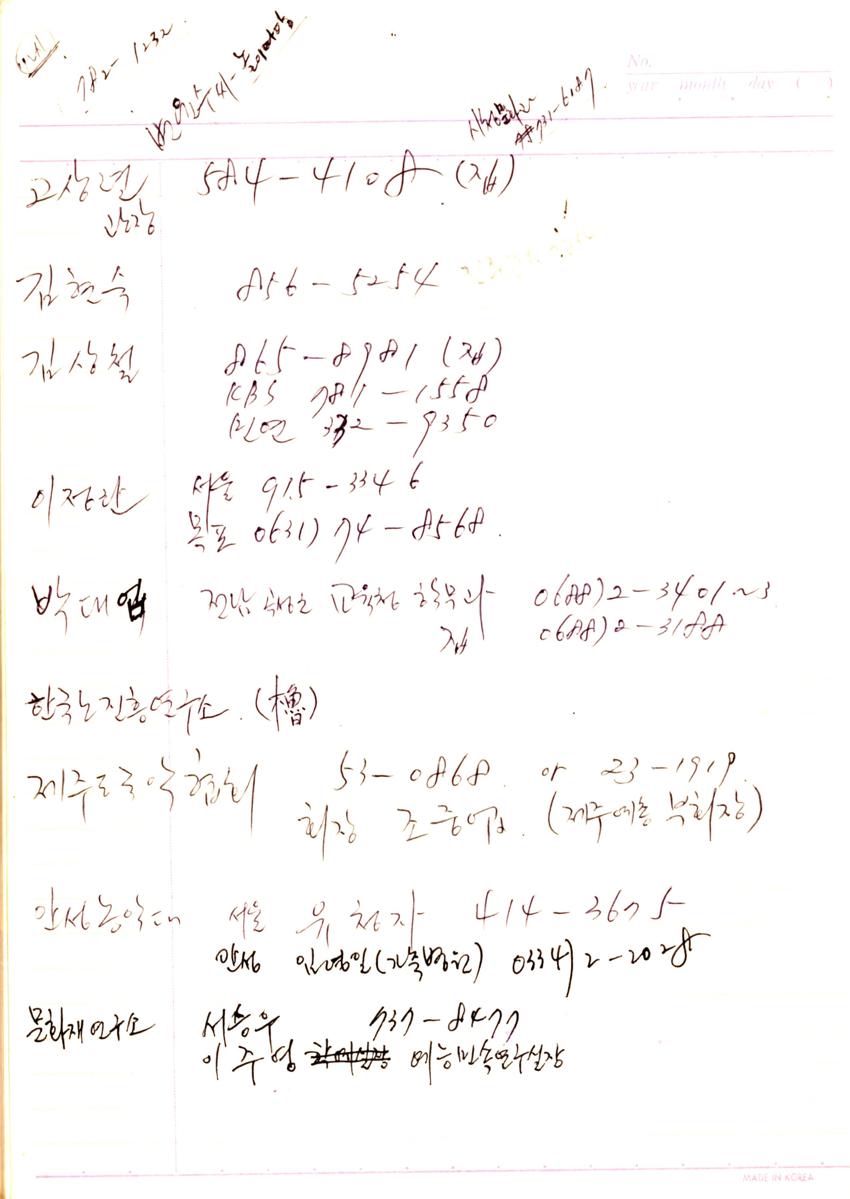 782-1232
No.
year month day ( )
731-6187
고상련 584-4108 (집)
과장
김현숙 856-5254
김상철 865-8981 (집)
KBS 781-1558
민연 332-9350
이정란 서울 915-3346
목포 0631) 74-8568.
박대업 전남 교육청 학무과 0688)2-3401~3
집 0688)2-3188
한국노진흥연구소. (櫓)
제주도국악협회 53-0868 or 23-1919.
회장 조중업. (제주예총 부회장)
안성농악대 서울 유청자 414-3675
안성 임영일(가축병원) 0334)2-2028
문화재연구소 서승우 737-8477
이주영 예능민속연구실장
MADE IN KOREA